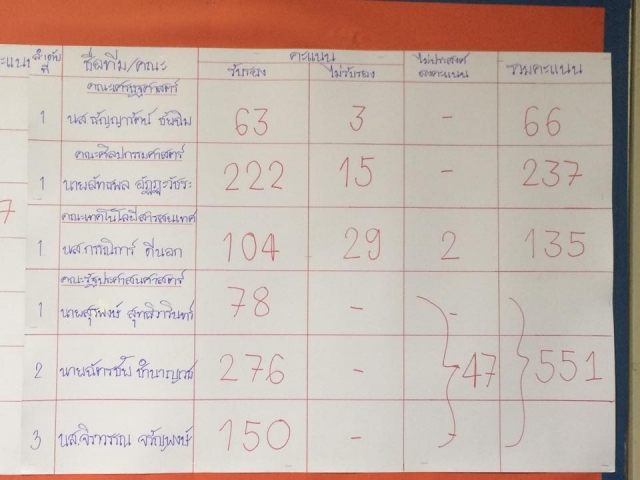 ลำดับที่ ชื่อทีม/คณะ คะแนน ไม่ประสงค์ลงคะแนน รวมคะแนน
รับรอง ไม่รับรอง
คณะเศรษฐศาสตร์
1 นส.ธัญญารัตน์ 63 3 - 66
คณะศิลปกรรมศาสตร์
1 นาย 222 15 - 237
คณะเทคโนโลยีสารสนเทศ
1 นส.กรรณิการ์ ดีนอก 104 29 2 135
คณะรัฐประศาสนศาสตร์
1 นายสุรพงษ์ 78 - -
2 นายฉัตรชัย ชำนาญเวช 276 - 47 551
3 นส.จิรวรรณ จรัญพงษ์ 150 - -